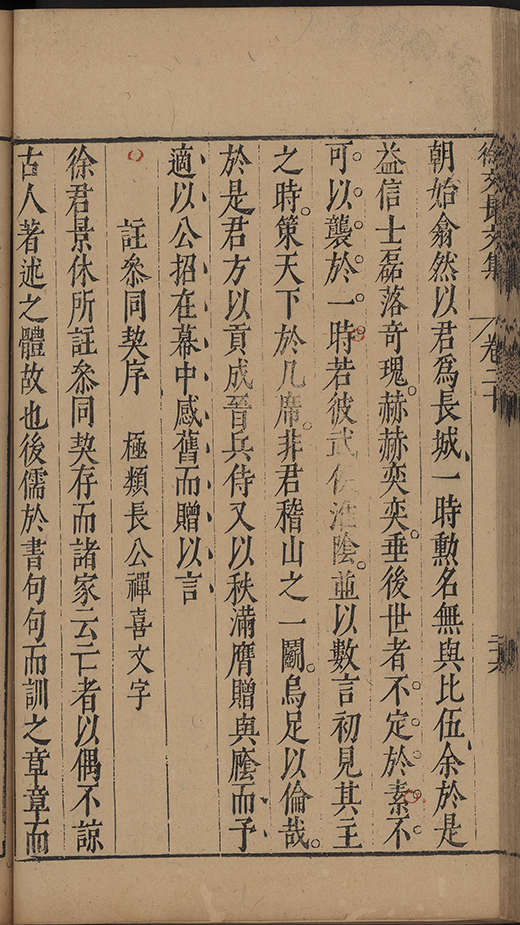 徐文長文集 卷二十
朝始翕然以君爲長城一時勲名無與比伍余於是
益信士磊落奇瑰赫赫奕奕垂後世者不定於素不
可以襲於一時若彼武侯淮陰並以數言初見其主
之時策天下於几席非君稽山之一鬭烏足以倫哉
於是君方以貢成晉兵侍又以秩滿膺贈與廕而予
適以公招在幕中感舊而贈以言
註叅同契序 極類長公禪喜文字
徐君景休所註叅同契存而諸家云亡者以偶不諒
古人著述之體故也後儒於書句句而訓之章章而